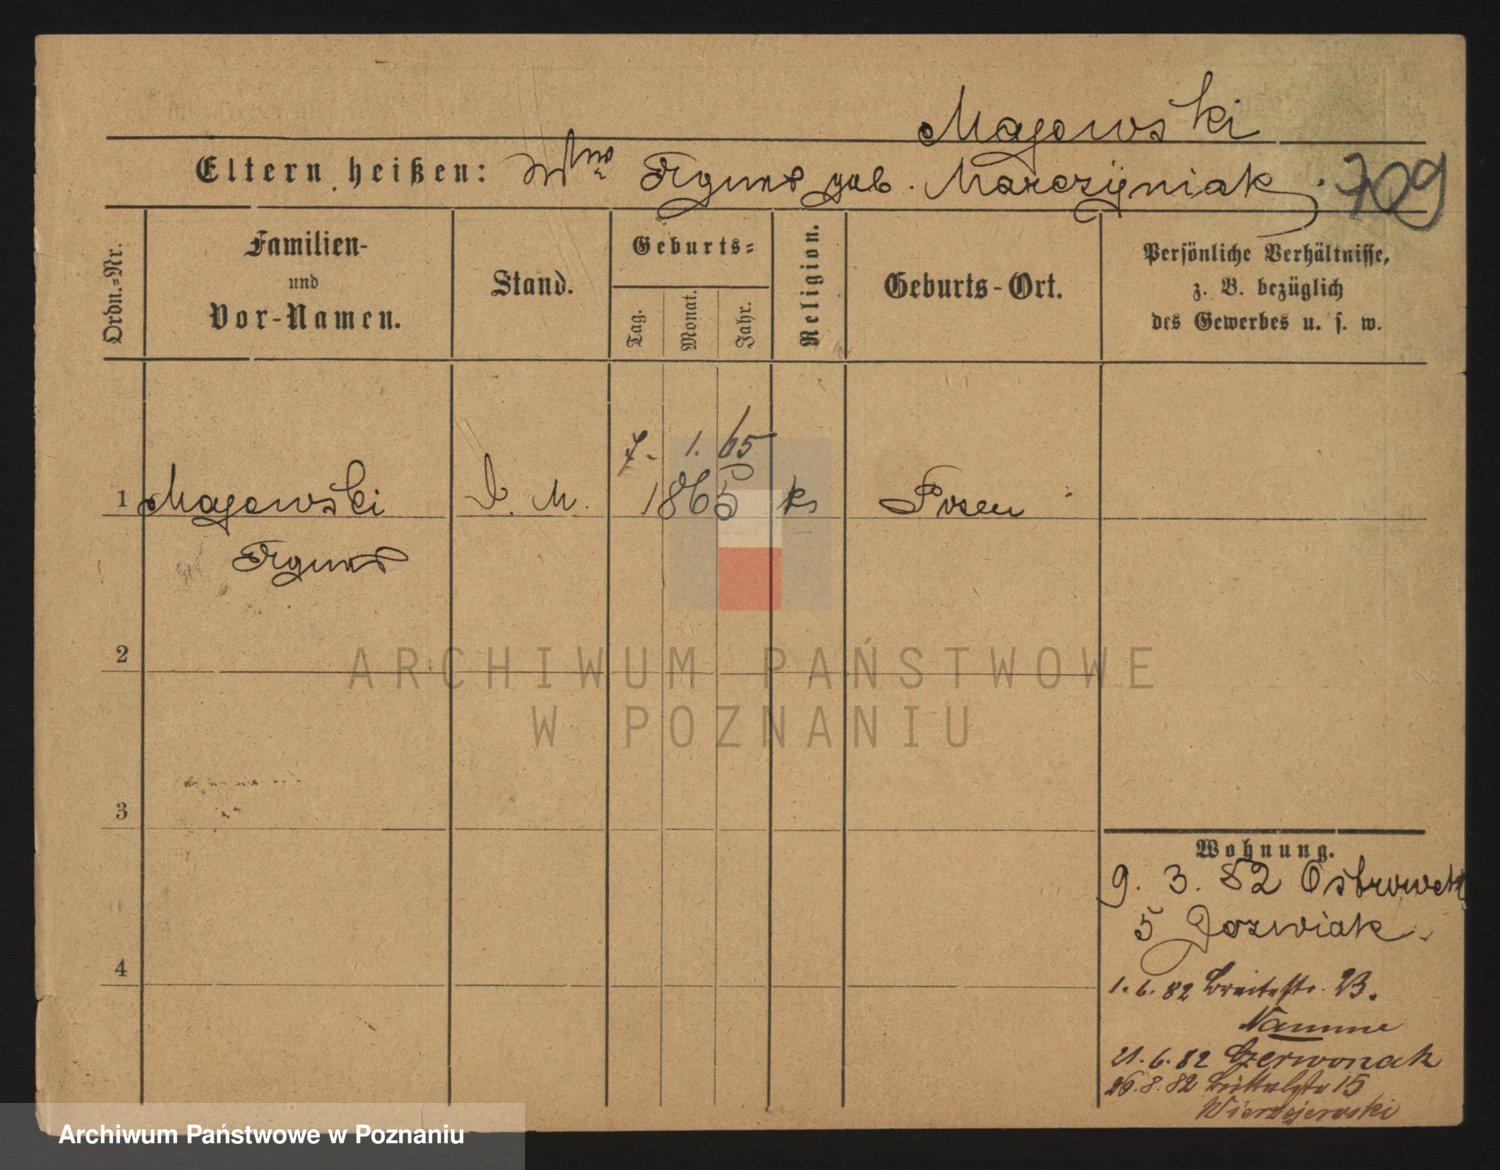 Majewski
Eltern heißen: Wwe Agnes geb. Marczyniak 709
Ordn.-Nr.
Familien-
und
Vor-Namen.
Stand.
Geburts-
Tag.
Monat.
Jahr.
Religion.
Geburts-Ort.
Persönliche Verhältnisse,
z. B. bezüglich
des Gewerbes u. s. w.
7. 1. 65
1 Majewski D. M. 1865 k Posen
Agnes
2
3
4
Wohnung.
9. 3. 82 Ostrowek
5 Jozwiak
1. 6. 82 Breitestr. 23.
Namme
21. 6. 82 Czerwonak
26. 8. 82 15
Wierzejewski
ARCHIWUM PAŃSTWOWE
W POZNANIU
Archiwum Państwowe w Poznaniu